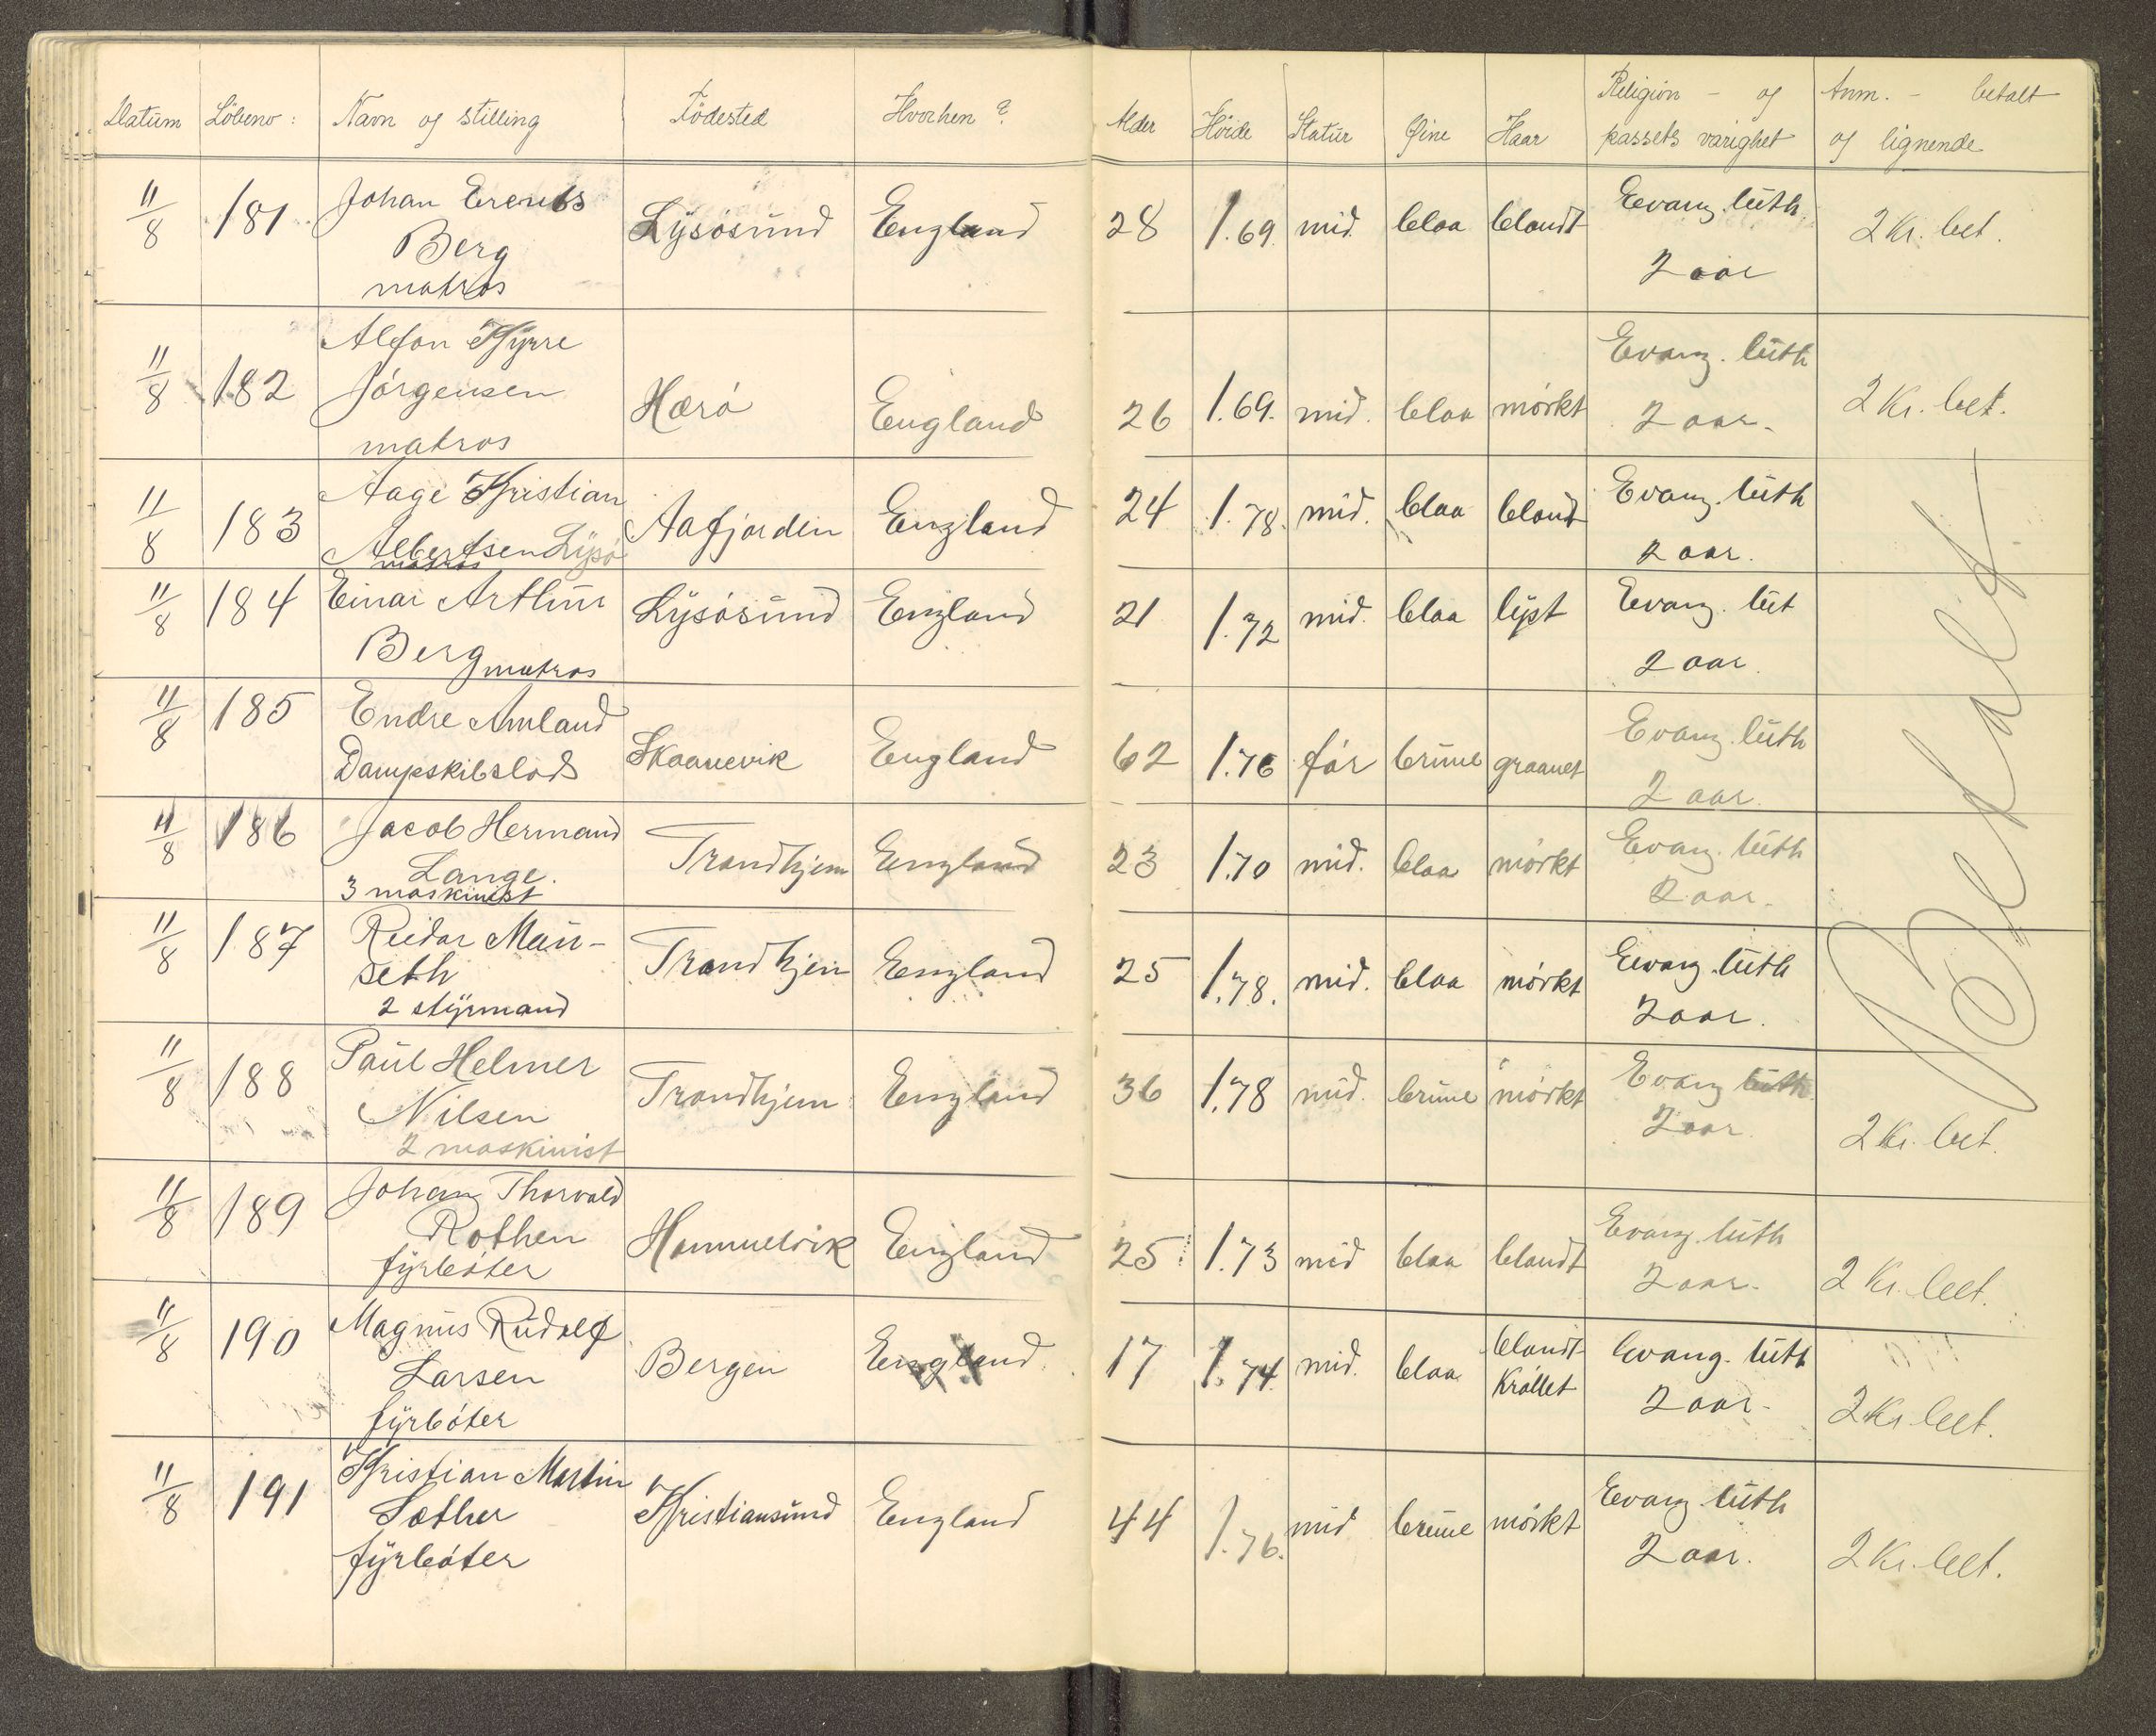 Datum Löbenr: Navn og stilling Födested Hvorhen? Alder Höide Statur Øine Haar Religion - og passets varighet Anm. - betalt og lignende
11/8 181 Johan Erents Lysösund England 28 1.69 mid. blaa blondt Evang. luth. 2 Kr. bet.
Berg 2 aar
matros
11/8 182 Alfon Kyrre
Jörgensen Hærö England 26 1.69. mid. blaa mörkt Evang. luth 2 Kr. bet.
matros 2 aar.
11/8 183 Aage Kristian Aafjorden England 24 1.78. mid. blaa blond Evang. luth
Albertsen Lysö 2 aar.
matros
11/8 184 Einar Arthur Lysösund England 21 1.72 mid. blaa lyst Evang. lut
Berg matros 2 aar.
11/8 185 Endre Amland Skaanevik England 62 1.76 för brune graanet Evang. luth
Dampskibslods 2 aar.
11/8 186 Jacob Hermand Trondhjem England 23 1.70 mid. blaa mörkt Evang. luth
Lange. 2 aar.
3 maskinist
11/8 187 Reidar Mau- Trondhjem England 25 1.78. mid. blaa mörkt Evang. luth
seth 2 aar.
2 styrmand
Betalt
11/8 188 Paul Helmer Trondhjem England 36 1.78 mid. brune mörkt Evang luth. 2 Kr. bet.
Nilsen 2 aar.
2 maskinist
11/8 189 Johan Thorvald Hommelvik England 25 1.73 mid blaa blondt Evang. luth 2 Kr. bet.
Rothen 2 aar.
fyrböter
11/8 190 Magnus Rudolf Bergen England 17 1.74. mid. blaa blondt Evang. luth 2 Kr. bet.
Larsen Kröllet 2 aar.
fyrböter
11/8 191 Kristian Martin Kristiansund England 44 1.76. mid brune mörkt Evang. luth 2 Kr. bet.
Sæther 2 aar.
fyrböter